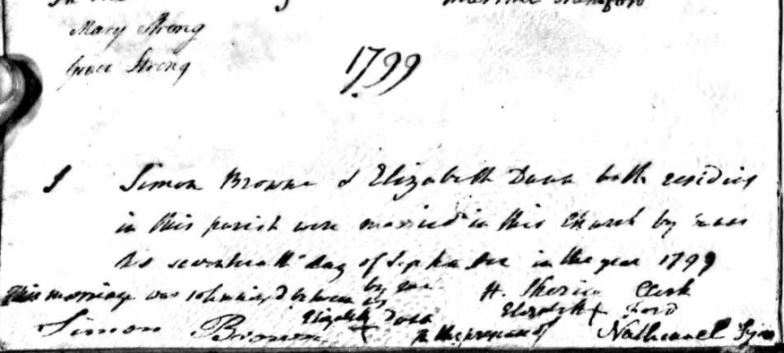 Mary Strong
Grace Strong
1799
1 Simon Browne & Elizabeth Dawn both residing
in this parish were married in this Church by Banns
this seventeenth day of September in the year 1799
by me H. Clerk
This marriage was solemnized between us Elizabeth Ford
Simon Brown Elizabeth Dawn In the presence of Nathanael